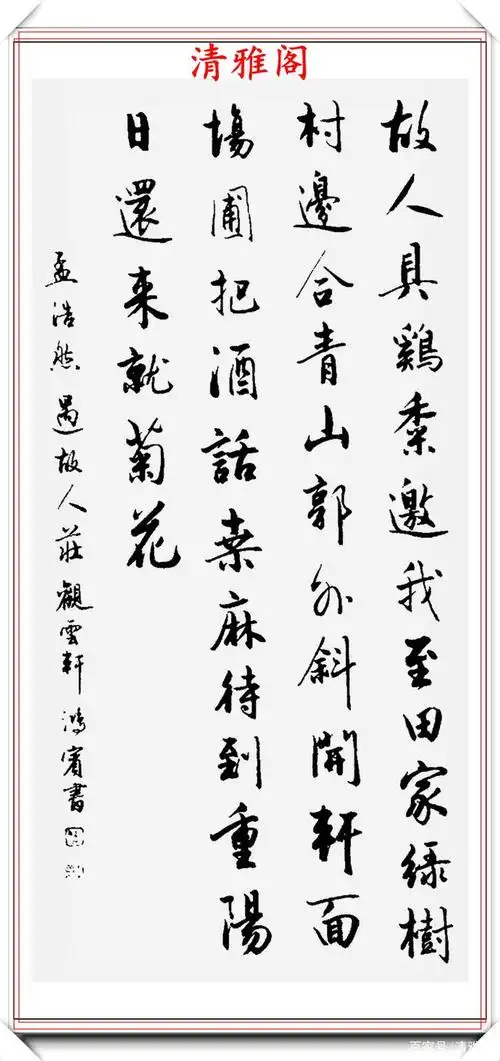 清雅阁
故人具鷄黍邀我至田家緑樹
村邊合青山郭外斜開軒面
場圃把酒話桒麻待到重陽
日還来就菊花
孟浩然過故人莊觀雲軒鴻賓書
百家号/清雅